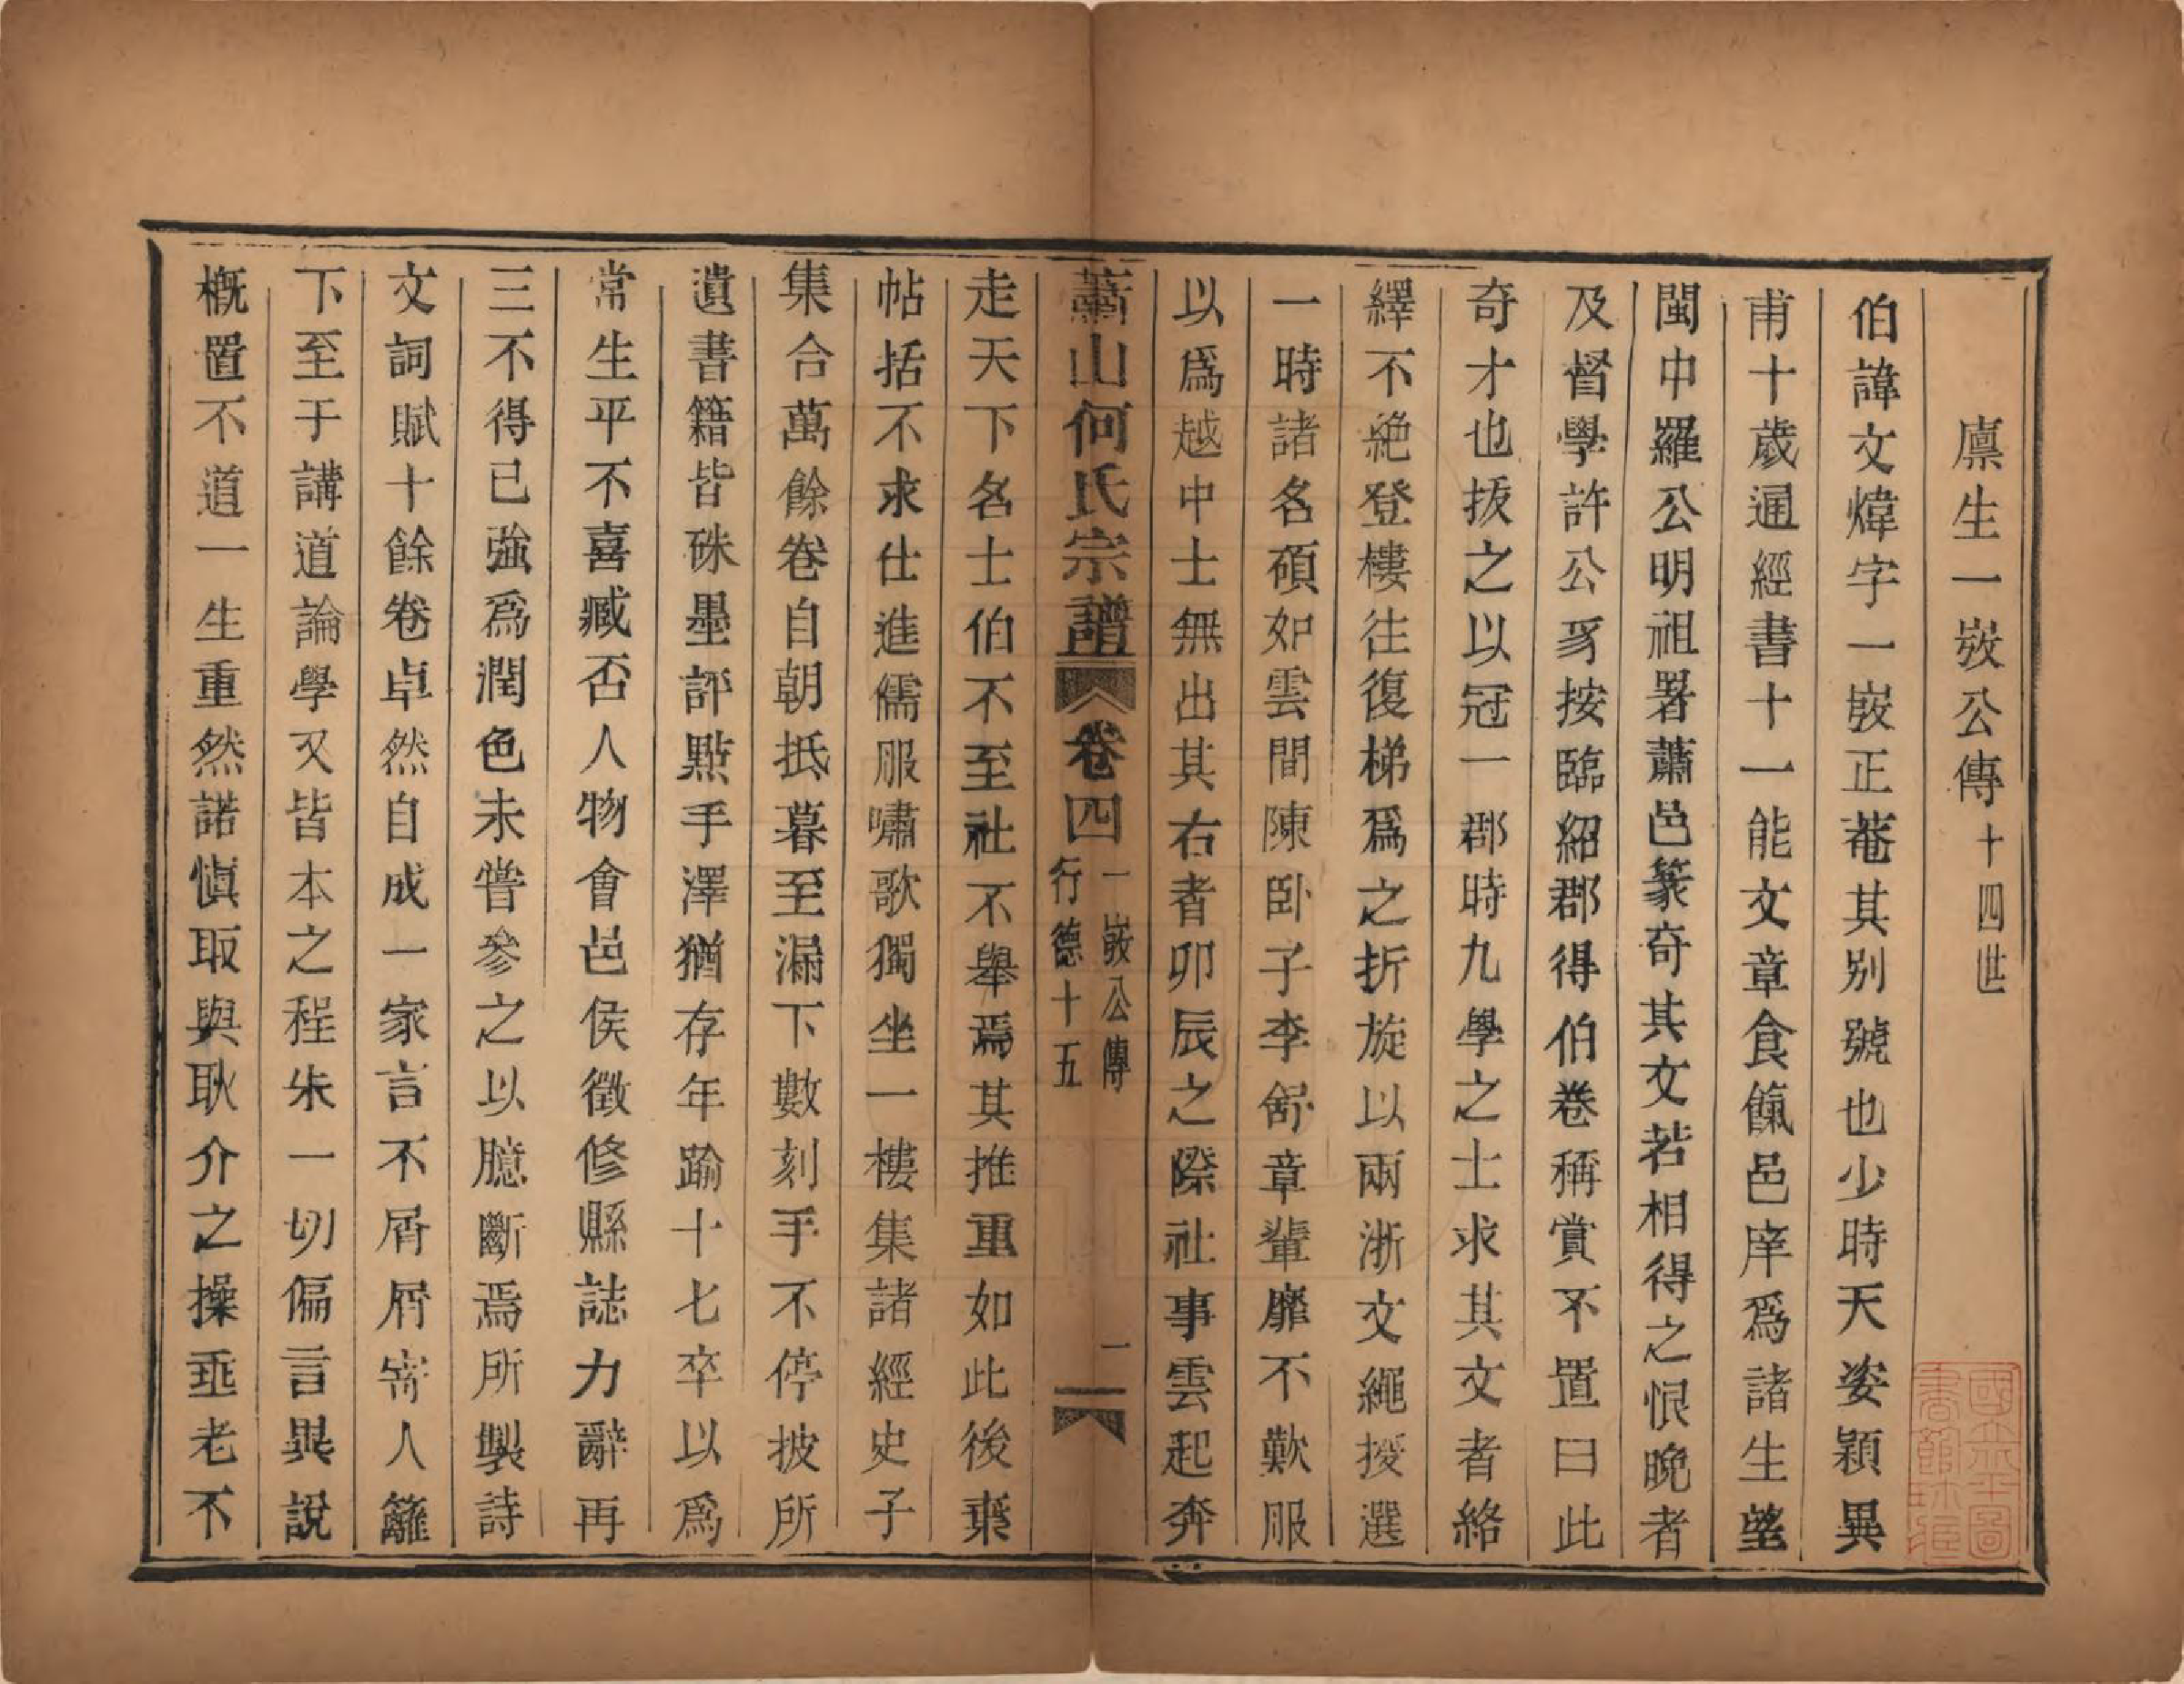 廪生一㟼公傳十四世
伯諱文煒字一㟼正菴其别號也少時天姿穎異
甫十歲通經書十一能文章食餼邑庠爲諸生望
閩中羅公明祖署蕭邑篆奇其文若相得之恨晚者
及督學許公豸按臨紹郡得伯卷稱賞不置曰此
奇才也拔之以冠一郡時九學之士求其文者絡
繹不絶登樓往復梯爲之折旋以兩浙文繩授選
一時諸名碩如雲間陳卧子李舒章輩靡不歎服
以爲越中士無出其右者卯辰之際社事雲起奔
蕭山何氏宗譜 卷四 一㟼公傳 行德十五 一
走天下名士伯不至社不舉焉其推重如此後棄
帖括不求仕進儒服嘯歌獨坐一樓集諸經史子
集合萬餘卷自朝抵暮至漏下數刻手不停披所
遺書籍皆硃墨評點手澤猶存年踰十七卒以爲
常生平不喜臧否人物會邑侯徵修縣誌力辭再
三不得已強爲潤色未嘗參之以臆斷焉所製詩
文詞賦十餘卷卓然自成一家言不屑屑寄人籬
下至于講道論學又皆本之程朱一切偏言異說
概置不道一生重然諾愼取與耿介之操垂老不
國立北平圖書館珍藏